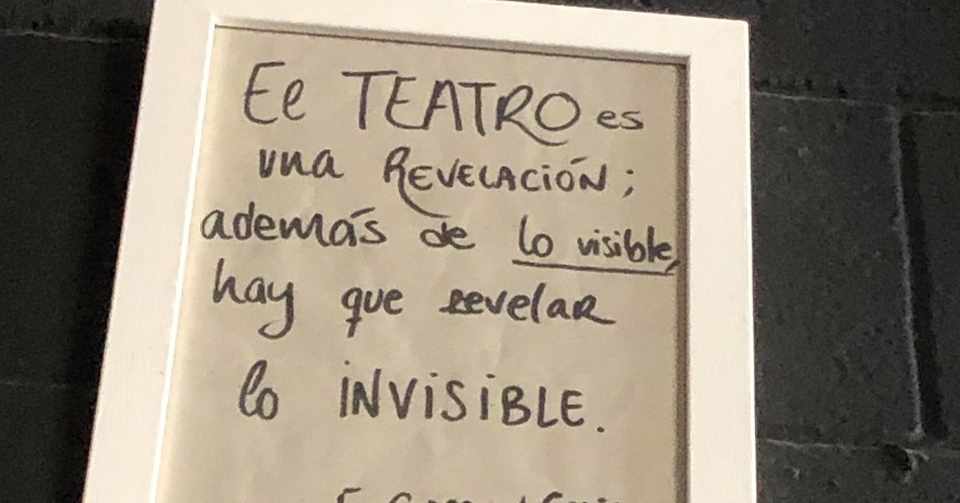 El TEATRO es
una REVELACIÓN;
además de lo visible,
hay que revelar
lo iNViSiBLE.